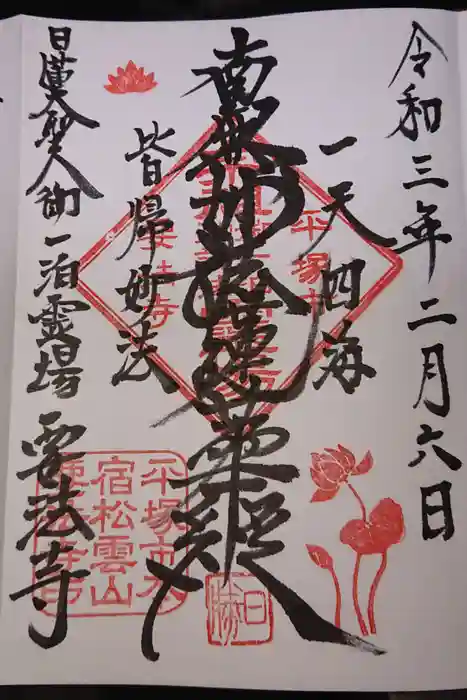 令和三年二月六日
一天四海
南無妙法蓮華経
皆帰妙法
日蓮大聖人御一泊霊場
要法寺
平塚市本
宿松雲山
要法寺印